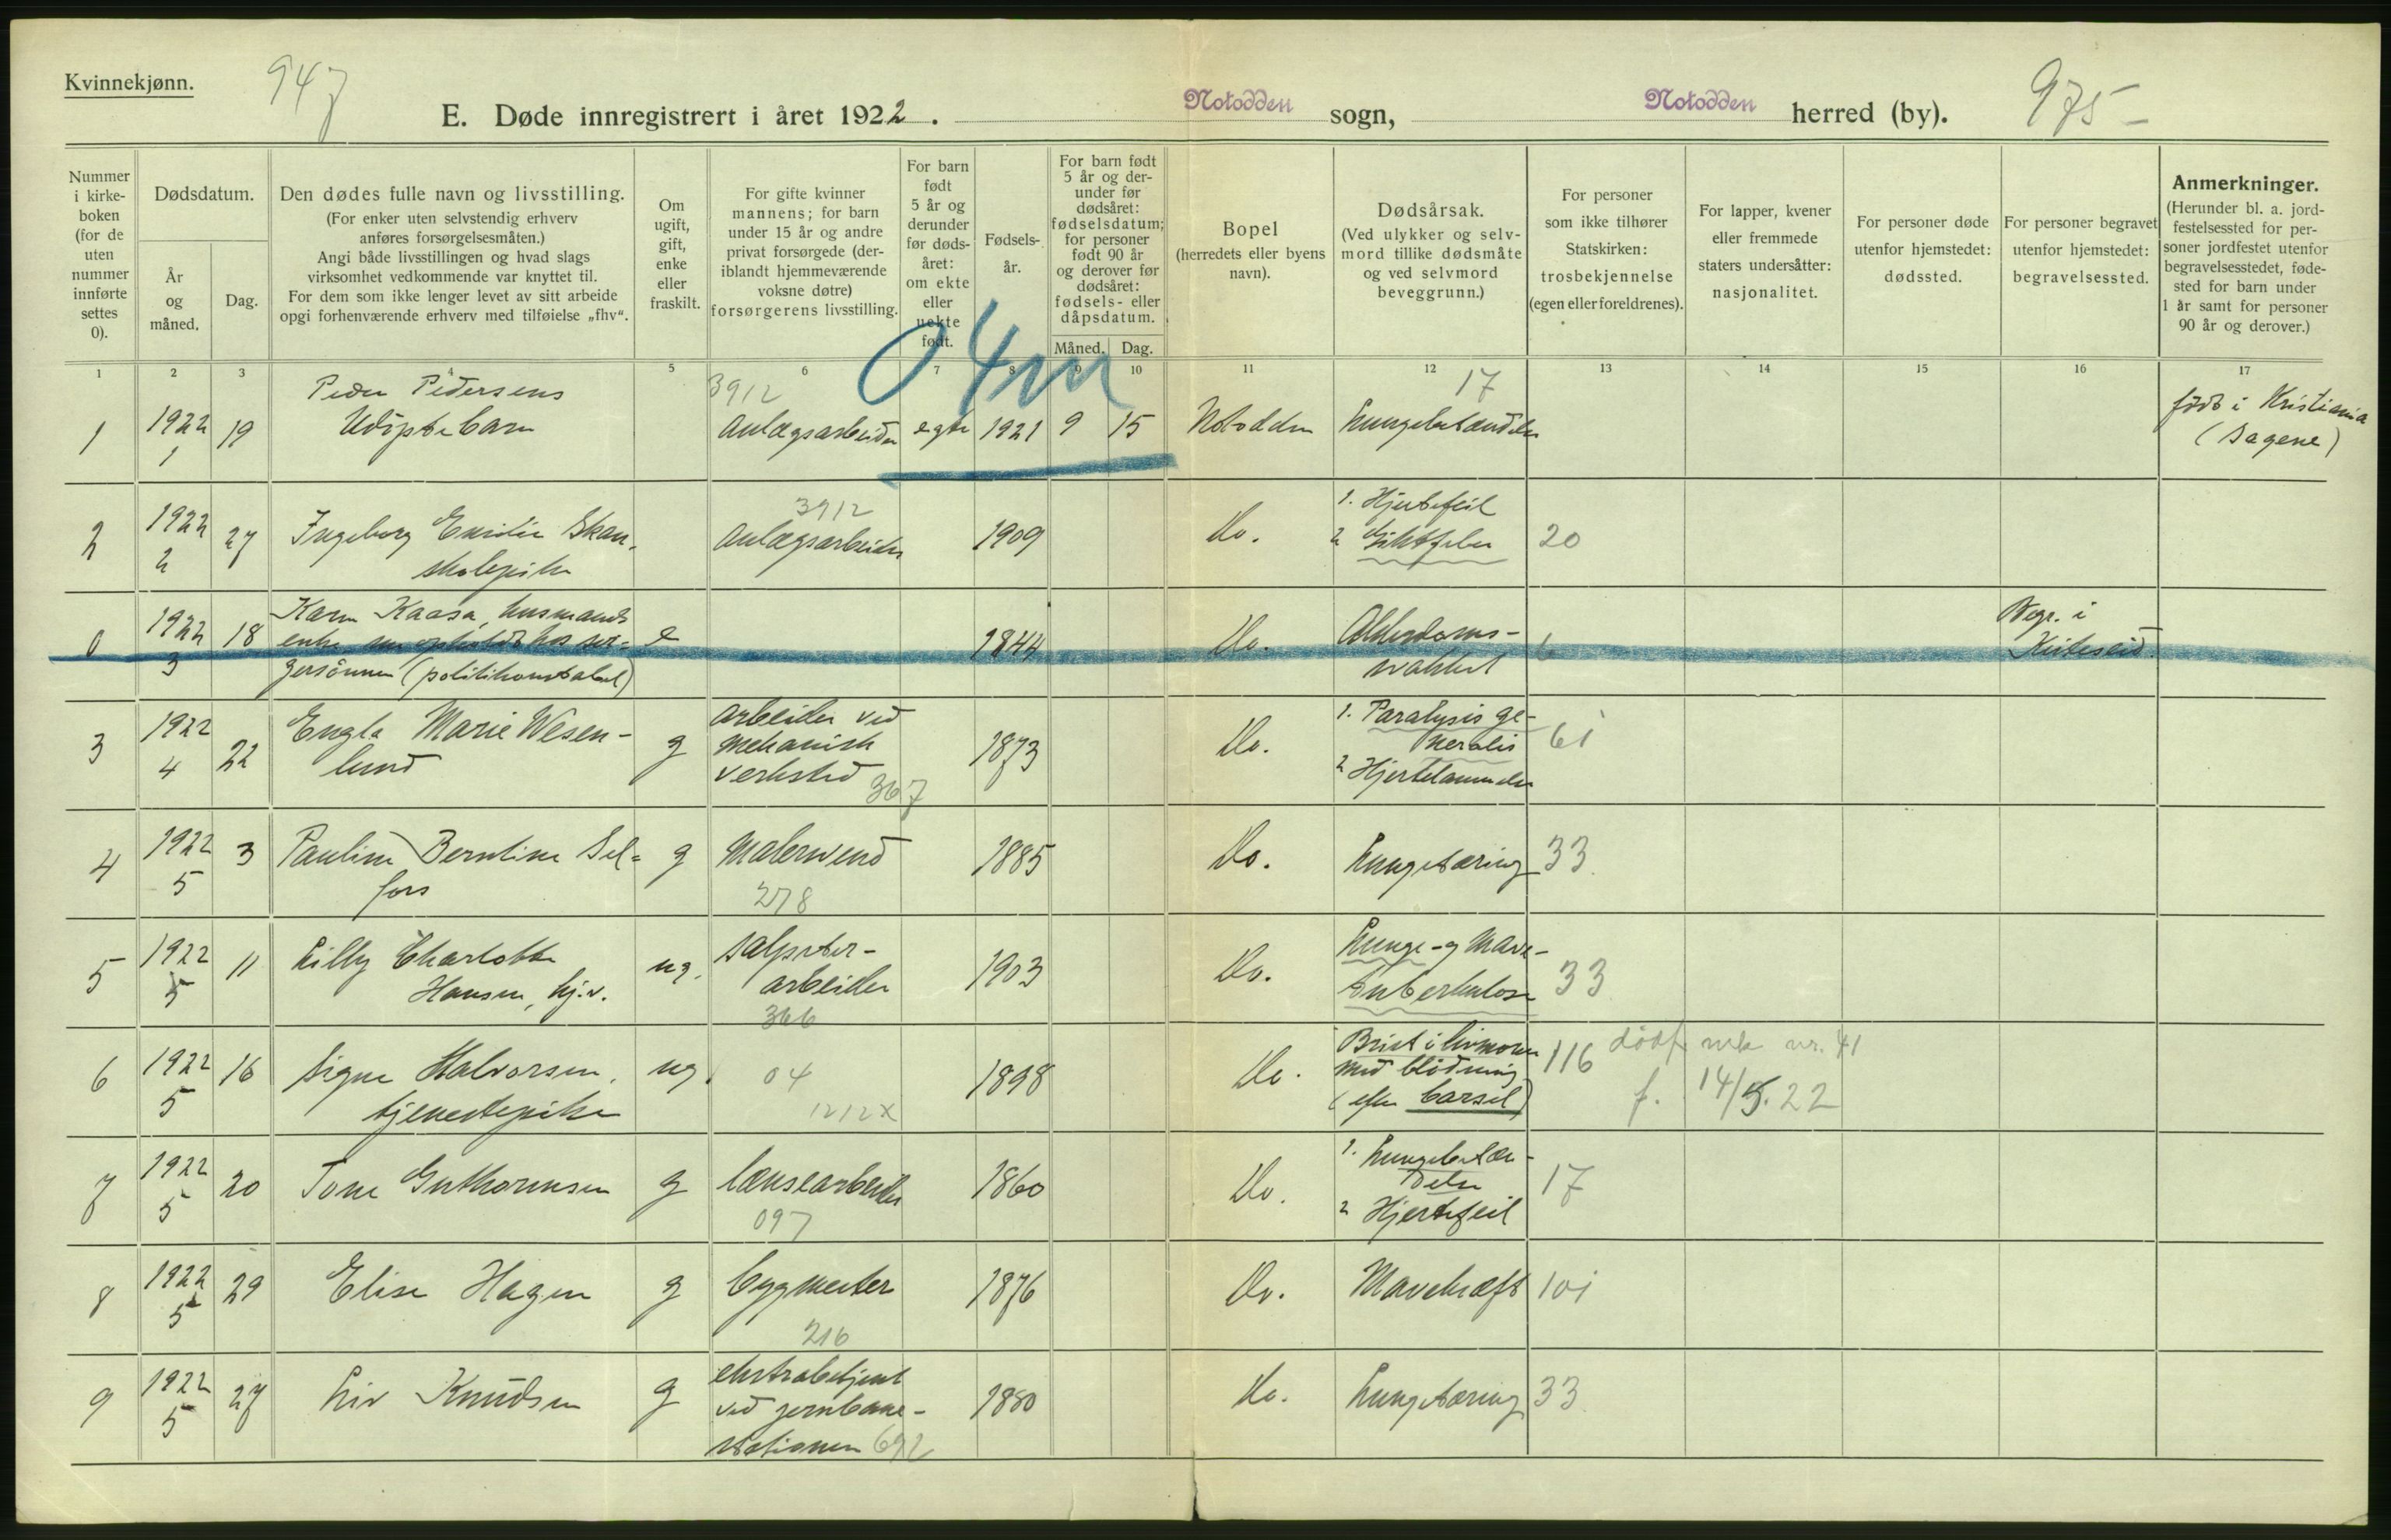 Kvinnekjønn.
947
E. Døde innregistrert i året 1922. Notodden sogn, Notodden herred (by). 975-
Nummer i kirkeboken (for de uten nummer innførte settes 0).
Dødsdatum.
År og måned.
Dag.
Den dødes fulle navn og livsstilling.
(For enker uten selvstendig erhverv anføres forsørgelsesmåten.)
Angi både livsstillingen og hvad slags virksomhet vedkommende var knyttet til.
For dem som ikke lenger levet av sitt arbeide opgi forhenværende erhverv med tilføielse „fhv“.
Om ugift, gift, enke eller fraskilt.
For gifte kvinner mannens; for barn under 15 år og andre privat forsørgede (deriblandt hjemmeværende voksne døtre) forsørgerens livsstilling.
For barn født 5 år og derunder før dødsåret: om ekte eller uekte født.
Fødselsår.
For barn født 5 år og derunder før dødsåret: fødselsdatum; for personer født 90 år og derover før dødsåret: fødsels- eller dåpsdatum.
Måned. Dag.
Bopel (herredets eller byens navn).
Dødsårsak.
(Ved ulykker og selvmord tillike dødsmåte og ved selvmord beveggrunn.)
For personer som ikke tilhører Statskirken: trosbekjennelse (egen eller foreldrenes).
For lapper, kvener eller fremmede staters undersåtter: nasjonalitet.
For personer døde utenfor hjemstedet: dødssted.
For personer begravet utenfor hjemstedet: begravelsessted.
Anmerkninger.
(Herunder bl. a. jordfestelsessted for personer jordfestet utenfor begravelsesstedet, fødested for barn under 1 år samt for personer 90 år og derover.)
1 2 3 4 5 6 7 8 9 10 11 12 13 14 15 16 17
04m
1 1922 1 19 Peder Pedersens Udøpte barn 3912 Anlægsarbeider egte 1921 9 15 Notodden 17 Lungebetændelse født i Kristiania (Sagene)
2 1922 2 27 Ingeborg Emilie Skan, skolepike 3912 Anlægsarbeider 1909 Do. 1. Hjertefeil 2 Giktfeber 20
0 1922 3 18 Karen Kaasa, husmands enke e 1844 Do. Alderdoms- svakhet Begr. i Kviteseid.
3 1922 4 22 Engla Marie Wesen- lund g Arbeider ved mekanisk verksted 367 1873 Do. 1. Paralysis ge- neralis 2 Hjertelammelse 61
4 1922 5 3 Pauline Berntine Sel= fors g Malersvend 278 1885 Do. Lungetæring 33
5 1922 5 11 Lilly Charlotte Hansen, hj.v. ug. Salpeter- arbeider 366 1903 Do. Lunge- og Mave- tuberkulose 33
6 1922 5 16 Signe Halvorsen, tjenestepike ug. 04 1212x 1898 Do. Brist i livmoren med blødning (efter barsel) 116 dødf. mk nr. 41 f. 14/5. 22
7 1922 5 20 Tone Guthormsen g Lænsearbeider 097 1860 Do. 1. Lungebetæn- delse 2 Hjertefeil 17
8 1922 5 29 Elise Hagen g Bygmester 216 1876 Do. Mavekræft 101
9 1922 5 27 Liv Knudsen g ekstrabetjent ved jernbane- stationen 692 1880 Do. Lungetæring 33